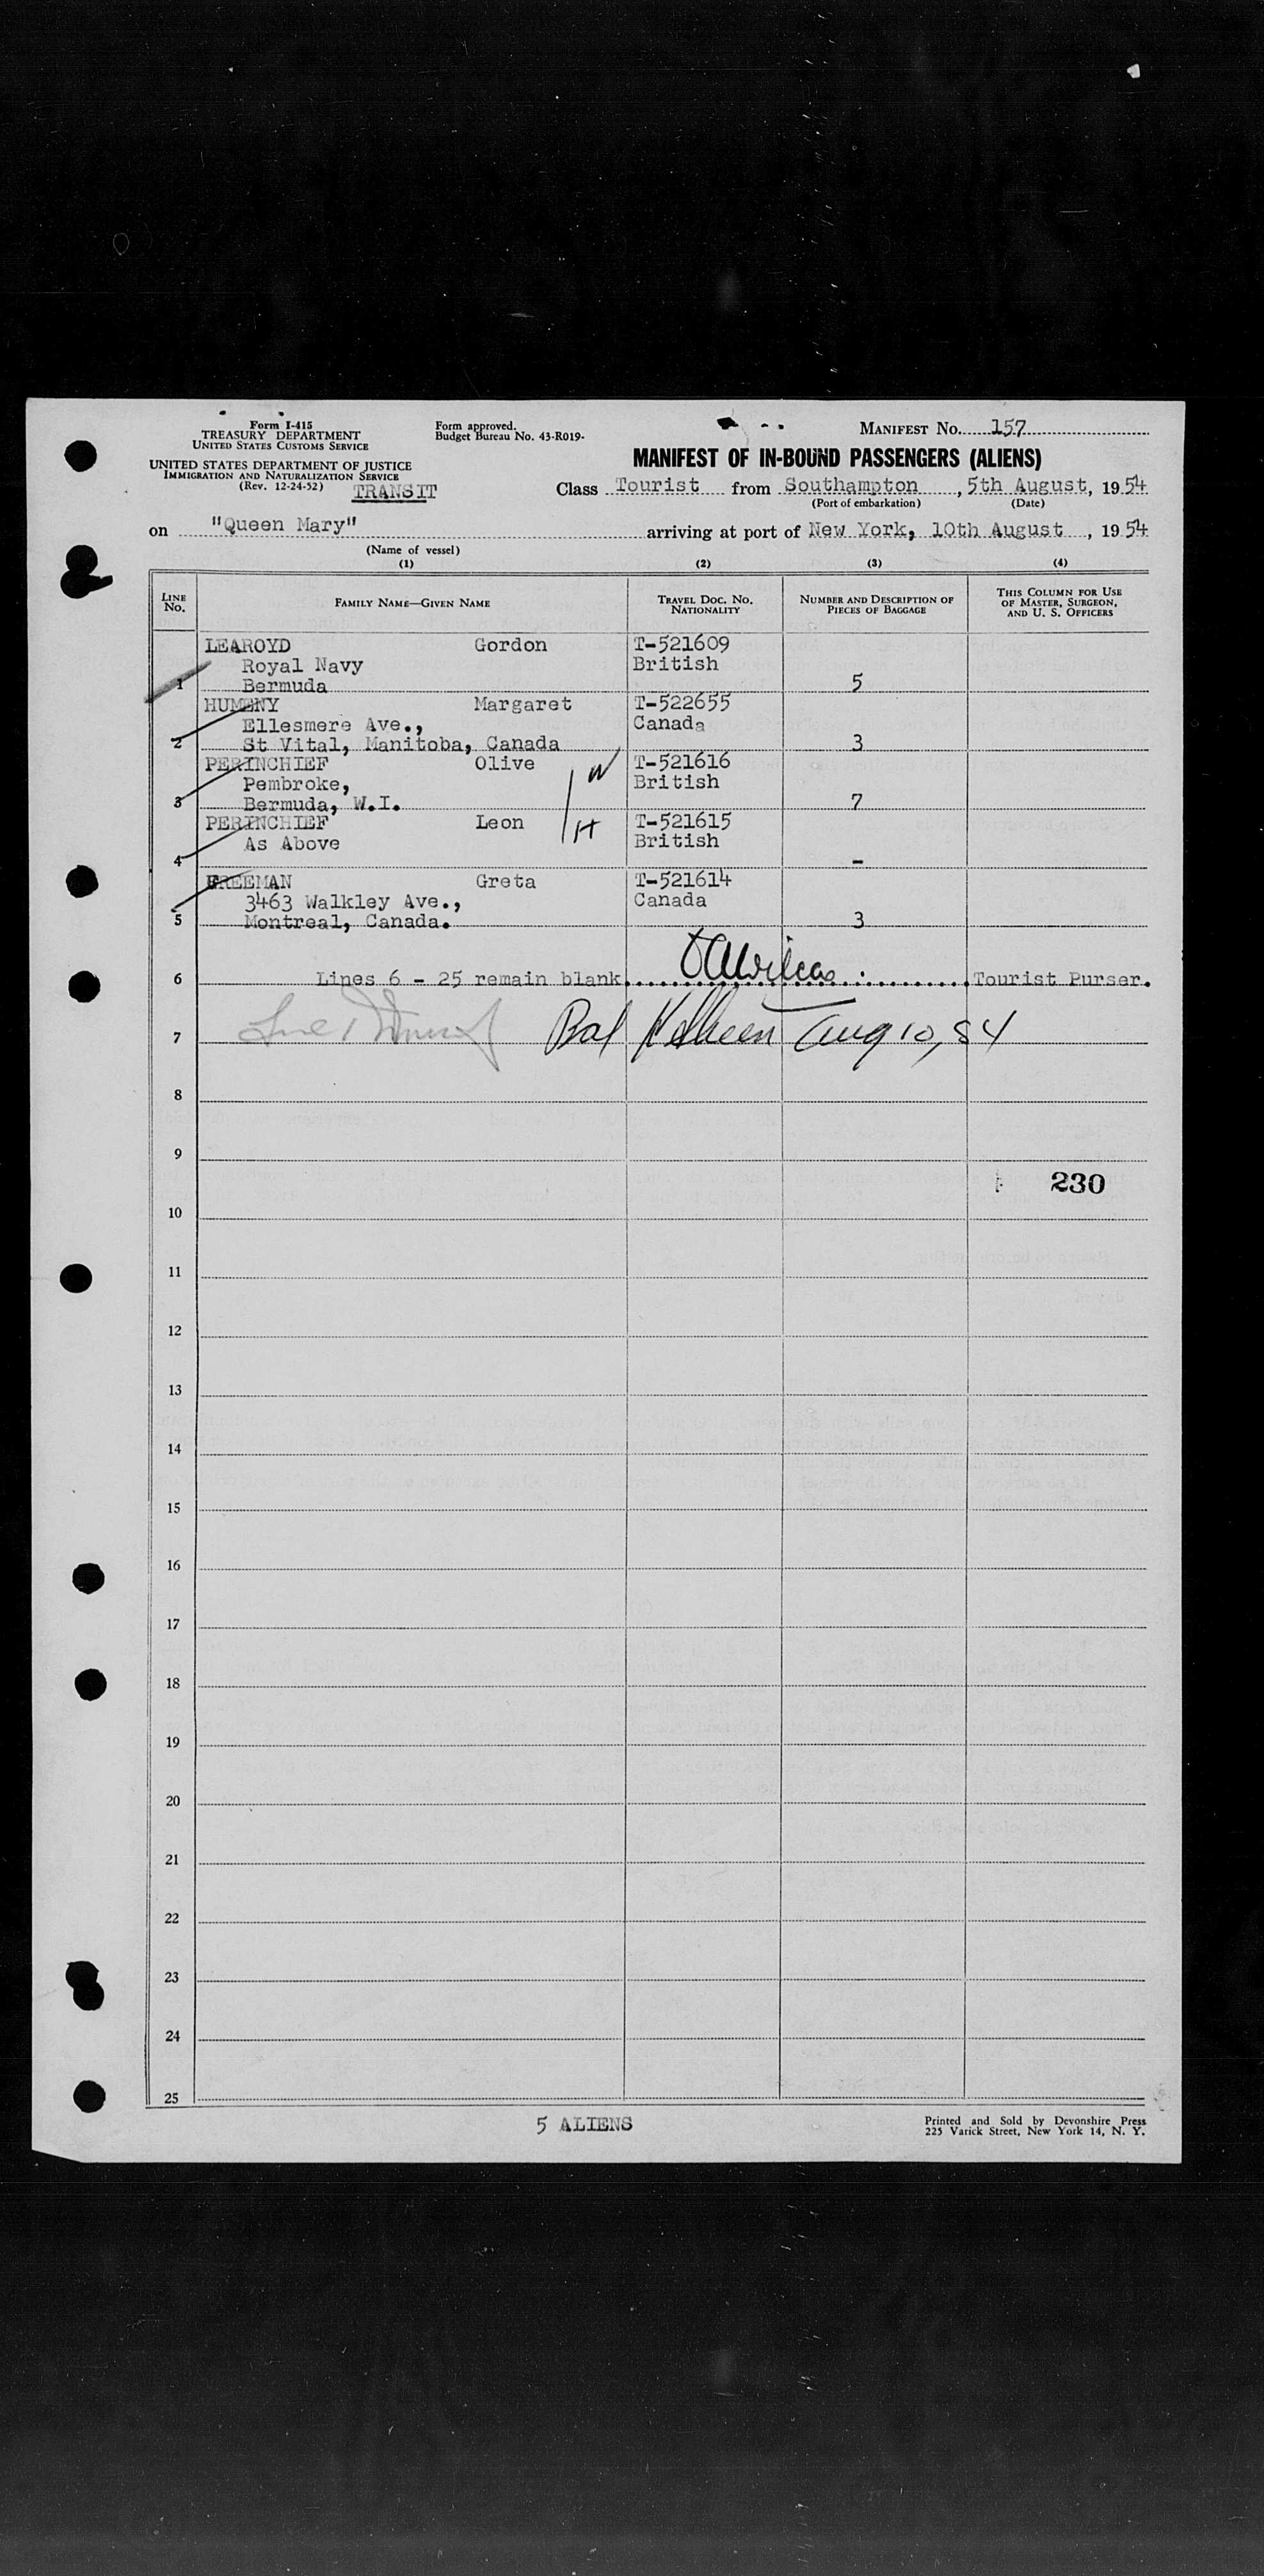 Form I-415
TREASURY DEPARTMENT
UNITED STATES CUSTOMS SERVICE
UNITED STATES DEPARTMENT OF JUSTICE
IMMIGRATION AND NATURALIZATION SERVICE
(Rev. 12-24-52) TRANSIT
Form approved.
Budget Bureau No. 43-R019-
MANIFEST NO. 157
MANIFEST OF IN-BOUND PASSENGERS (ALIENS)
Class Tourist from Southampton, 5th August, 1954
(Port of embarkation) (Date)
on "Queen Mary" arriving at port of New York, 10th August, 1954
(Name of vessel)
(1) (2) (3) (4)
LINE NO. FAMILY NAME—GIVEN NAME TRAVEL DOC. NO. NATIONALITY NUMBER AND DESCRIPTION OF PIECES OF BAGGAGE THIS COLUMN FOR USE OF MASTER, SURGEON, AND U. S. OFFICERS
LEAROYD Gordon T-521609
Royal Navy British
1 Bermuda 5
Margaret T-522655
Ellesmere Ave., Canada
2 St Vital, Manitoba, Canada 3
PERINCHIEF Olive W T-521616
Pembroke, British
3 Bermuda, W.I. 7
PERINCHIEF Leon H T-521615
As Above British
4 -
FREEMAN Greta T-521614
3463 Walkley Ave., Canada
5 Montreal, Canada. 3
6 Lines 6 - 25 remain blank Tourist Purser.
7 Aug 10, 54
8
9
230
10
11
12
13
14
15
16
17
18
19
20
21
22
23
24
25
5 ALIENS
Printed and Sold by Devonshire Press
225 Varick Street, New York 14, N. Y.